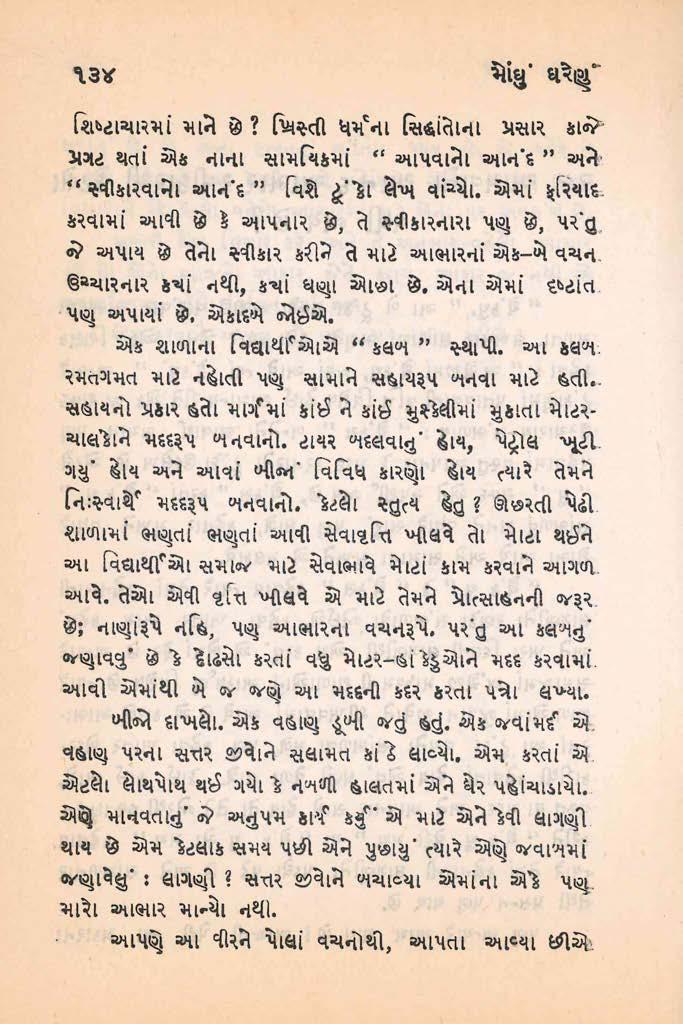 ૧૩૪
મોંઘું ઘરેણું
શિષ્ટાચારમાં માને છે? ખ્રિસ્તી ધર્મના સિદ્ધાંતોના પ્રસાર કાજે
પ્રગટ થતાં એક નાના સામયિકમાં “ આપવાનો આનંદ ” અને
“ સ્વીકારવાનો આનંદ ” વિશે ટૂંકો લેખ વાંચ્યો. એમાં ફરિયાદ
કરવામાં આવી છે કે આપનાર છે, તે સ્વીકારનારા પણ છે, પરંતુ
જે અપાય છે તેનો સ્વીકાર કરીને તે માટે આભારનાં એક–બે વચન
ઉચ્ચારનાર કયાં નથી, કયાં ઘણા ઓછા છે. એના એમાં દષ્ટાંત
પણ અપાયાં છે. એકાદબે જોઈએ.
એક શાળાના વિદ્યાર્થીઓએ “ કલબ ” સ્થાપી. આ કલબ
રમતગમત માટે નહોતી પણ સામાને સહાયરૂપ બનવા માટે હતી.
સહાયનો પ્રકાર હતો માર્ગમાં કાંઈ ને કાંઈ મુશ્કેલીમાં મુકાતા મોટર-
ચાલકોને મદદરૂપ બનવાનો. ટાયર બદલવાનું હોય, પેટ્રોલ ખૂટી
ગયું હોય અને આવાં બીજાં વિવિધ કારણો હોય ત્યારે તેમને
નિઃસ્વાર્થે મદદરૂપ બનવાનો. કેટલો સ્તુત્ય હેતુ? ઊછરતી પેઢી
શાળામાં ભણતાં ભણતાં આવી સેવાવૃત્તિ ખીલવે તો મોટા થઈને
આ વિદ્યાર્થીઓ સમાજ માટે સેવાભાવે મોટાં કામ કરવાને આગળ
આવે. તેઓ એવી વૃત્તિ ખીલવે એ માટે તેમને પ્રોત્સાહનની જરૂર
છે; નાણાંરૂપે નહિ, પણ આભારના વચનરૂપે. પરંતુ આ કલબનું
જણાવવું છે કે દોઢસો કરતાં વધુ મોટર-હાંકેડુઓને મદદ કરવામાં
આવી એમાંથી બે જ જણે આ મદદની કદર કરતા પત્રો લખ્યા.
બીજો દાખલો. એક વહાણ ડૂબી જતું હતું. એક જવાંમર્દ એ
વહાણ પરના સત્તર જીવોને સલામત કાંઠે લાવ્યો. એમ કરતાં એ
એટલો લોથપોથ થઈ ગયો કે નબળી હાલતમાં એને ઘેર પહોંચાડાયો.
એણે માનવતાનું જે અનુપમ કાર્ય કર્યું એ માટે એને કેવી લાગણી
થાય છે એમ કેટલાક સમય પછી એને પુછાયું ત્યારે એણે જવાબમાં
જણાવેલું : લાગણી? સત્તર જીવોને બચાવ્યા એમાંના એકે પણ
મારો આભાર માન્યો નથી.
આપણે આ વીરને પોલાં વચનોથી, આપતા આવ્યા છીએ